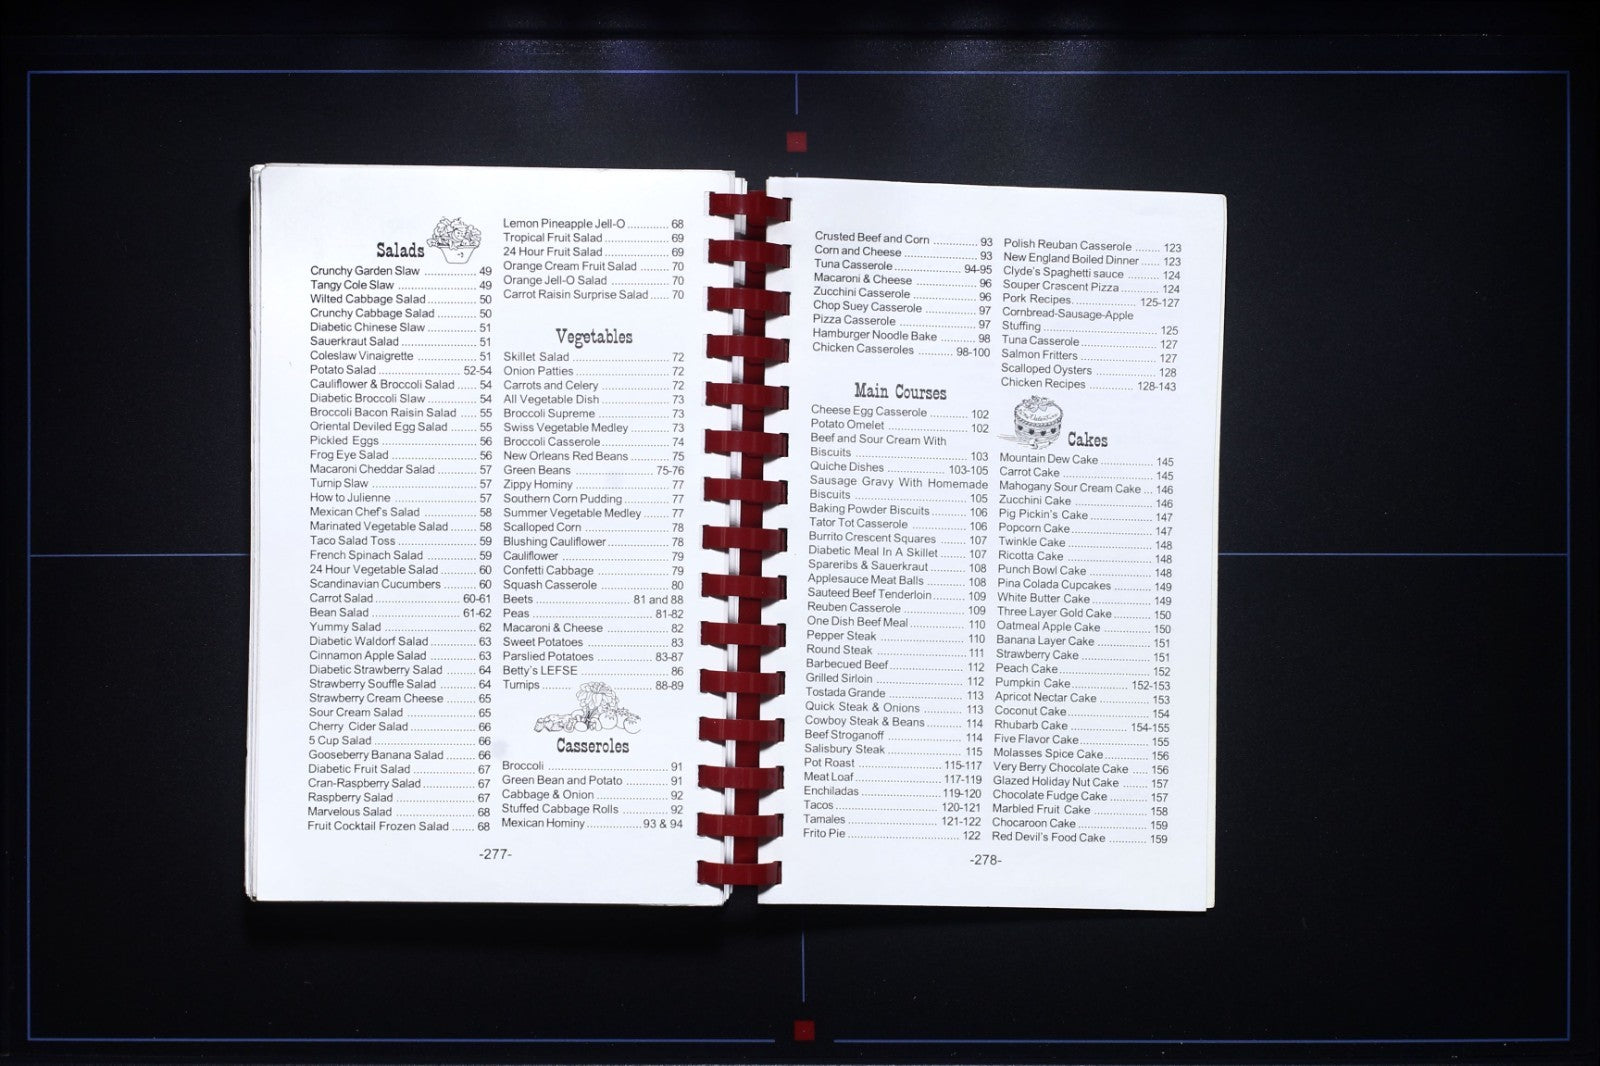 Salads
Crunchy Garden Slaw .................. 49
Tangy Cole Slaw .......................... 49
Wilted Cabbage Salad ................. 50
Crunchy Cabbage Salad .............. 50
Diabetic Chinese Slaw ................. 51
Sauerkraut Salad ......................... 51
Coleslaw Vinaigrette .................... 51
Potato Salad ........................... 52-54
Cauliflower & Broccoli Salad ...... 54
Diabetic Broccoli Slaw ................. 54
Broccoli Bacon Raisin Salad ..... 55
Oriental Deviled Egg Salad ........ 55
Pickled Eggs ............................... 56
Frog Eye Salad ............................ 56
Macaroni Cheddar Salad ............ 57
Turnip Slaw .................................. 57
How to Julienne ........................... 57
Mexican Chef's Salad .................. 58
Marinated Vegetable Salad ........ 58
Taco Salad Toss .......................... 59
French Spinach Salad ................. 59
24 Hour Vegetable Salad ............ 60
Scandinavian Cucumbers ........... 60
Carrot Salad ........................... 60-61
Bean Salad ............................. 61-62
Yummy Salad ............................... 62
Diabetic Waldorf Salad ................ 63
Cinnamon Apple Salad ................ 63
Diabetic Strawberry Salad .......... 64
Strawberry Souffle Salad ............ 64
Strawberry Cream Cheese ......... 65
Sour Cream Salad ....................... 65
Cherry Cider Salad ...................... 66
5 Cup Salad ................................. 66
Gooseberry Banana Salad ......... 66
Diabetic Fruit Salad ..................... 67
Cran-Raspberry Salad ................ 67
Raspberry Salad .......................... 67
Marvelous Salad .......................... 68
Fruit Cocktail Frozen Salad ....... 68
Lemon Pineapple Jell-O ............. 68
Tropical Fruit Salad ..................... 69
24 Hour Fruit Salad ..................... 69
Orange Cream Fruit Salad ........ 70
Orange Jell-O Salad .................... 70
Carrot Raisin Surprise Salad ...... 70
Vegetables
Skillet Salad ................................. 72
Onion Patties ............................... 72
Carrots and Celery ...................... 72
All Vegetable Dish ....................... 73
Broccoli Supreme ........................ 73
Swiss Vegetable Medley ............. 73
Broccoli Casserole ....................... 74
New Orleans Red Beans ............. 75
Green Beans .......................... 75-76
Zippy Hominy ............................... 77
Southern Corn Pudding ............... 77
Summer Vegetable Medley ......... 77
Scalloped Corn ............................ 78
Blushing Cauliflower .................... 78
Cauliflower ................................... 79
Confetti Cabbage ......................... 79
Squash Casserole ....................... 80
Beets ............................... 81 and 88
Peas ........................................ 81-82
Macaroni & Cheese ..................... 82
Sweet Potatoes ............................ 83
Parslied Potatoes ................... 83-87
Betty's LEFSE .............................. 86
Turnips .................................... 88-89
Casseroles
Broccoli ........................................ 91
Green Bean and Potato .............. 91
Cabbage & Onion ........................ 92
Stuffed Cabbage Rolls ................ 92
Mexican Hominy ................. 93 & 94
-277-
Crusted Beef and Corn .............. 93
Corn and Cheese ........................ 93
Tuna Casserole ..................... 94-95
Macaroni & Cheese ..................... 96
Zucchini Casserole ...................... 96
Chop Suey Casserole ................. 97
Pizza Casserole .......................... 97
Hamburger Noodle Bake ............ 98
Chicken Casseroles ........... 98-100
Main Courses
Cheese Egg Casserole ............ 102
Potato Omelet ............................ 102
Beef and Sour Cream With
Biscuits ....................................... 103
Quiche Dishes .................... 103-105
Sausage Gravy With Homemade
Biscuits ....................................... 105
Baking Powder Biscuits ............ 106
Tator Tot Casserole ................... 106
Burrito Crescent Squares ......... 107
Diabetic Meal In A Skillet .......... 107
Spareribs & Sauerkraut ............. 108
Applesauce Meat Balls ............. 108
Sauteed Beef Tenderloin .......... 109
Reuben Casserole ..................... 109
One Dish Beef Meal .................. 110
Pepper Steak ............................. 110
Round Steak .............................. 111
Barbecued Beef ......................... 112
Grilled Sirloin .............................. 112
Tostada Grande ......................... 113
Quick Steak & Onions ............... 113
Cowboy Steak & Beans ............ 114
Beef Stroganoff .......................... 114
Salisbury Steak .......................... 115
Pot Roast ............................. 115-117
Meat Loaf ............................. 117-119
Enchiladas .......................... 119-120
Tacos ................................... 120-121
Tamales ............................... 121-122
Frito Pie ...................................... 122
Polish Reuban Casserole ........ 123
New England Boiled Dinner ..... 123
Clyde's Spaghetti sauce .......... 124
Souper Crescent Pizza ............ 124
Pork Recipes ..................... 125-127
Cornbread-Sausage-Apple
Stuffing ....................................... 125
Tuna Casserole ......................... 127
Salmon Fritters .......................... 127
Scalloped Oysters ..................... 128
Chicken Recipes ................ 128-143
Cakes
Mountain Dew Cake .................. 145
Carrot Cake ............................... 145
Mahogany Sour Cream Cake ... 146
Zucchini Cake ............................ 146
Pig Pickin's Cake ....................... 147
Popcorn Cake ............................ 147
Twinkle Cake .............................. 148
Ricotta Cake .............................. 148
Punch Bowl Cake ...................... 148
Pina Colada Cupcakes ............. 149
White Butter Cake ..................... 149
Three Layer Gold Cake ............. 150
Oatmeal Apple Cake ................. 150
Banana Layer Cake ................... 151
Strawberry Cake ........................ 151
Peach Cake ............................... 152
Pumpkin Cake ..................... 152-153
Apricot Nectar Cake .................. 153
Coconut Cake ............................ 154
Rhubarb Cake ..................... 154-155
Five Flavor Cake ........................ 155
Molasses Spice Cake ................ 156
Very Berry Chocolate Cake ..... 156
Glazed Holiday Nut Cake ......... 157
Chocolate Fudge Cake ............. 157
Marbled Fruit Cake .................... 158
Chocaroon Cake ........................ 159
Red Devil's Food Cake ............ 159
-278-